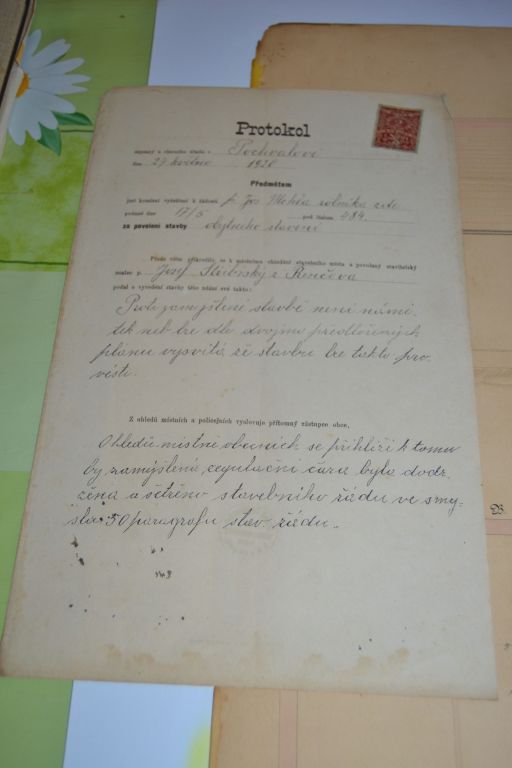 Protokol
sepsaný u obecního úřadu v Pochvalově
dne 29 května 1920
Předmětem
jest konání vyšetření k žádosti p. Jos. rolníka zde
podané dne 17/5 pod číslem 484
za povolení stavby obytného stavení
Přede vším přikročilo se k místnímu ohledání stavebního místa a povolaný stavitelský
znalec p. Josef z Renčova
podal o vyšetření stavby této nález své takto:
Proti zamýšlené stavbě není námi-
tek neb lze dle dvojmo předložených
plánu vysvítá že stavbu lze takto pro-
vésti.
Z ohledů místních a policejních vyslovuje přítomný zástupce obce,
Ohledů místní obecních se přihlíží k tomu
by zamýšlená regulační čára byla dodr-
žena a šetřeno stavebního řádu ve smy-
slu 50 paragrafu stav. řádu.